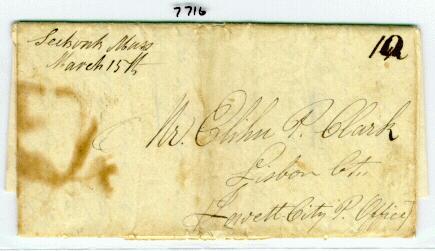 7716
Seekonk Mass
March 15th
Mr. Elihu P. Clark
Lisbon Ct.
Jewett City P. Office